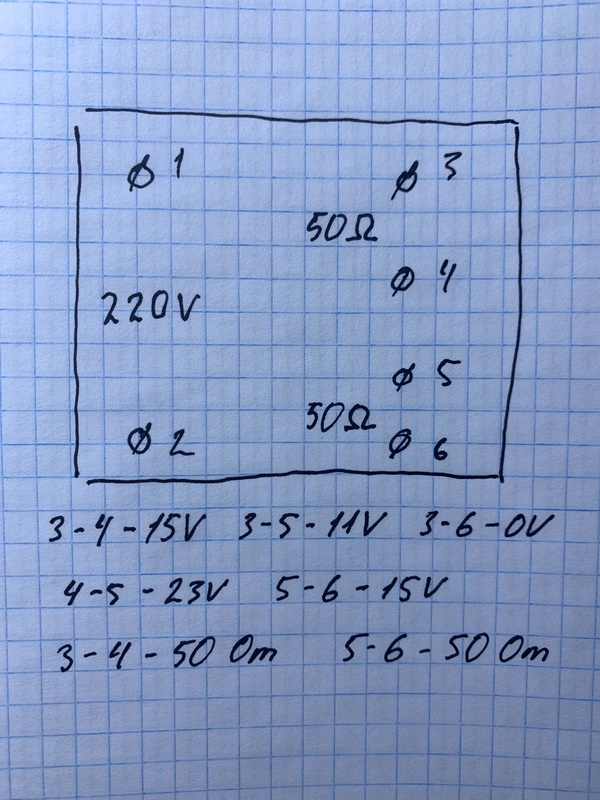 ϕ 1
ϕ 3
50Ω
ϕ 4
220V
ϕ 5
50Ω
ϕ 2
ϕ 6
3-4-15V 3-5-11V 3-6-0V
4-5-23V 5-6-15V
3-4-50 Om 5-6-50 Om